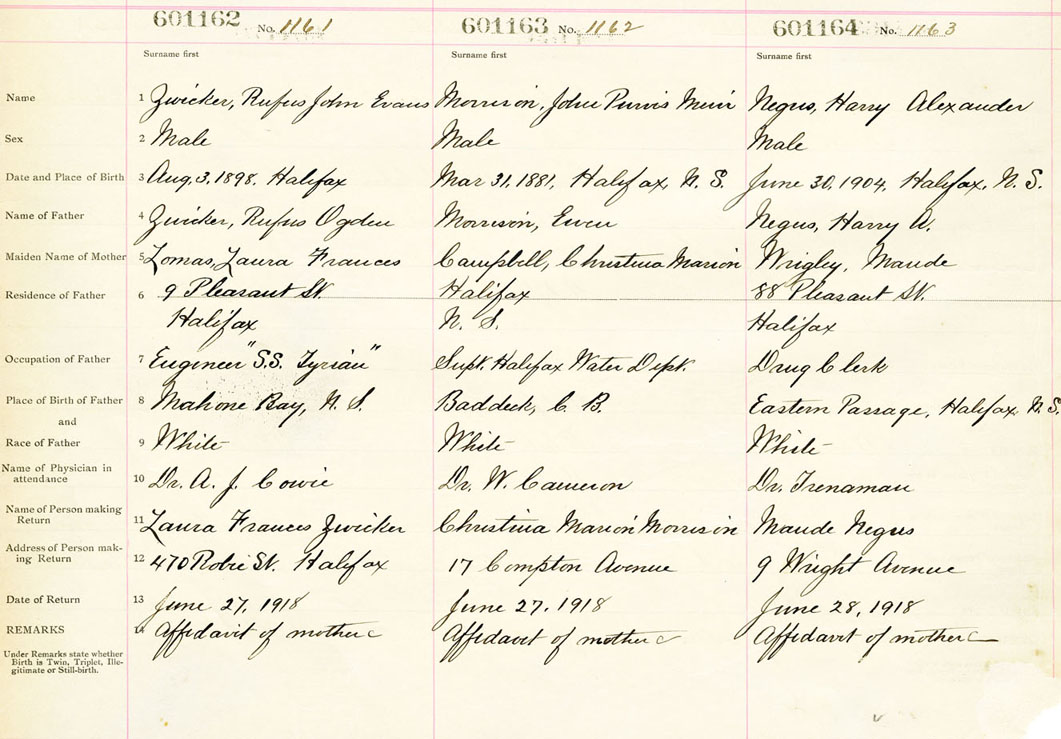 601162 No. 1161 601163 No. 1162 601164 No. 1163
Surname first Surname first Surname first
Name 1 Zwicker, Rufus John Evans Morrison, John Purvis Muir Negus, Harry Alexander
Sex 2 Male Male Male
Date and Place of Birth 3 Aug. 3, 1898. Halifax Mar 31, 1881, Halifax, N. S. June 30, 1904, Halifax, N. S.
Name of Father 4 Zwicker, Rufus Ogden Morrison, Ewen Negus, Harry A.
Maiden Name of Mother 5 Lomas, Laura Frances Campbell, Christina Marion Wrigley, Maude
Residence of Father 6 9 Pleasant St. Halifax 88 Pleasant St.
Halifax N. S. Halifax
Occupation of Father 7 Engineer "S.S. Tyrian" Supt. Halifax Water Dept. Drug Clerk
Place of Birth of Father 8 Mahone Bay, N. S. Baddeck, C. B. Eastern Passage, Halifax, N. S.
and
Race of Father 9 White White White
Name of Physician in
attendance 10 Dr. A. J. Cowie Dr. W. Cameron Dr. Trenaman
Name of Person making
Return 11 Laura Frances Zwicker Christina Marion Morrison Maude Negus
Address of Person mak-
ing Return 12 470 Robie St. Halifax 17 Compton Avenue 9 Wright Avenue
Date of Return 13 June 27, 1918 June 27, 1918 June 28, 1918
REMARKS 14 Affidavit of mother Affidavit of mother Affidavit of mother
Under Remarks state whether
Birth is Twin, Triplet, Ille-
gitimate or Still-birth.